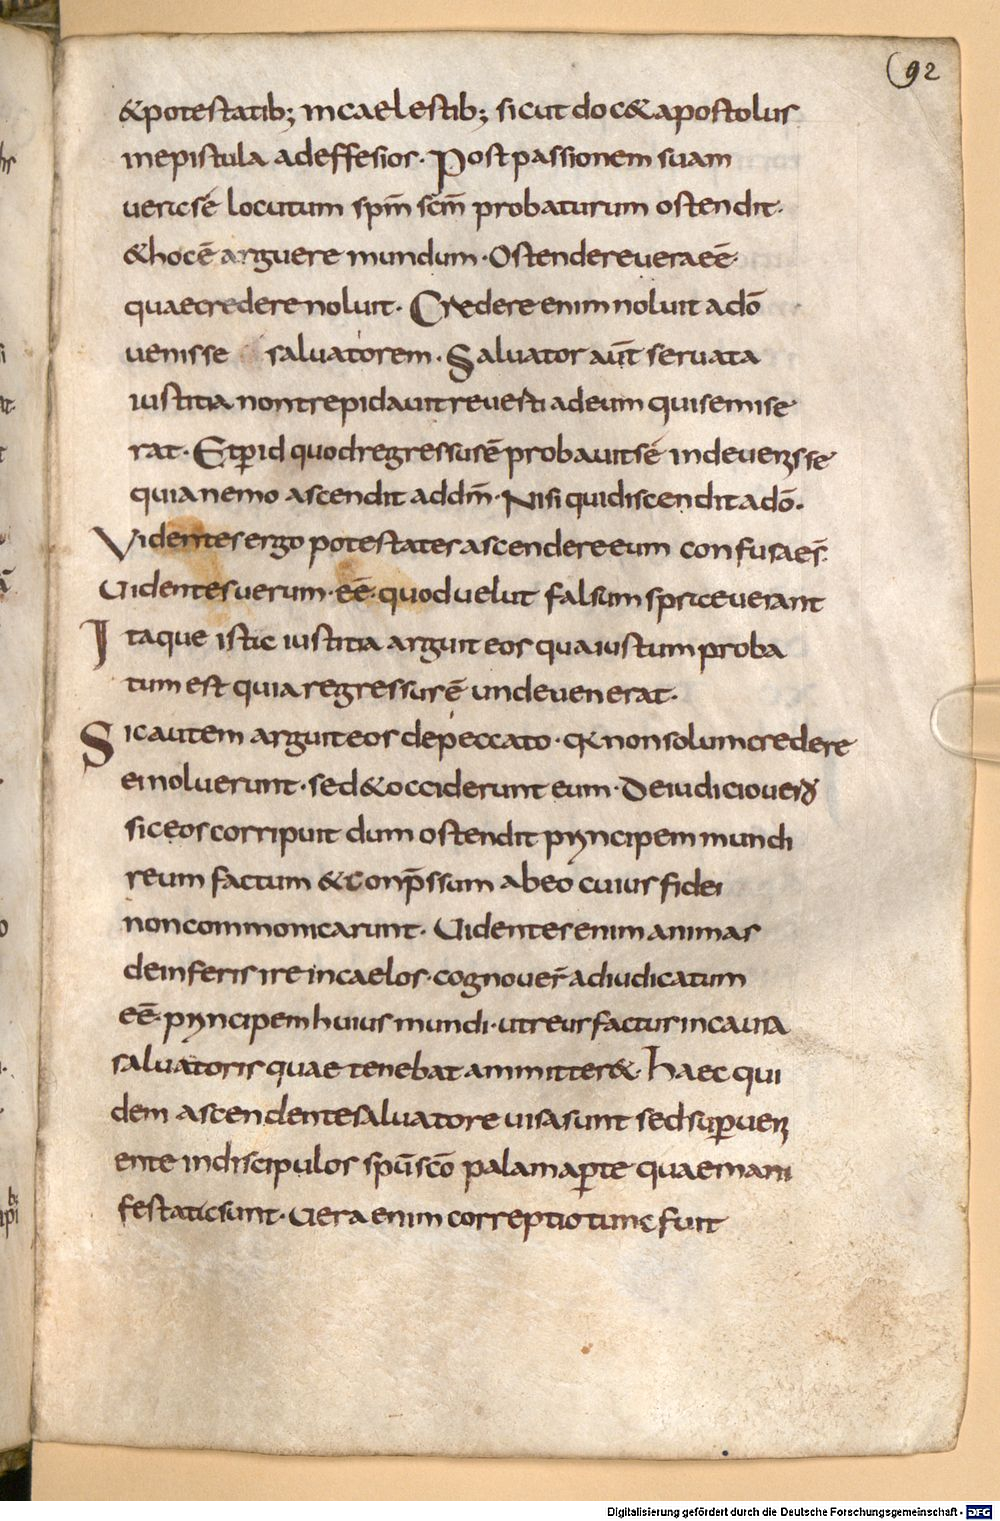 (92
&potestatib; incaelestib; sicut doc& apostolus
inepistula adeffesios. Post passionem suam
ueric sē locutum spm̄ scm̄ probaturum ostendit.
&hoc ē arguere mundum. Ostendere uera eē.
quae credere noluit. Credere enim noluit adō
uenisse saluatorem. Saluator aut̄ seruata
iustitia non trepidauit reuesti adeum qui semise
rat. Et ꝑ id quod regressus ē probauit sē inde uenisse
quia nemo ascendit addm̄. Nisi qui discendit adō.
Videntes ergo potestates ascendere eum confusae s̄.
Uidentes uerum. eē. quod uelut falsum spreceuerant
Itaque istic iustitia arguit eos qua iustum proba
tum est quia regressus ē unde uenerat.
Sic autem arguit eos de peccato. qR non solum credere
ei noluerunt. sed & occiderunt eum. De iudicio uero
sic eos corripuit dum ostendit principem mundi
reum factum & conp̄ssum ab eo cuius fidei
non commonicarunt. Uidentes enim animas
de inferis ire in caelos. cognouer̄ adiudicatum
eē. principem huius mundi. ut reus factus in causa
saluatoris quae tenebat ammitter&. haec qui
dem ascendente saluatore uisa sunt sed suꝑueni
ente in discipulos spū scō palam aꝑte quae mani
festatic sunt. Uera enim correptio tunc fuit
Digitalisierung gefördert durch die Deutsche Forschungsgemeinschaft - DFG